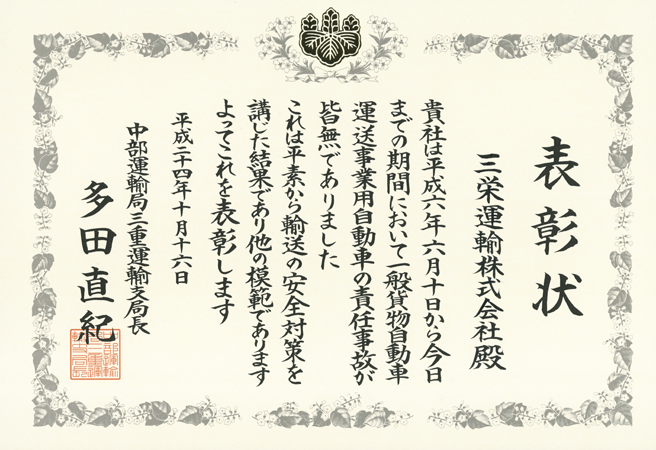 表彰状
三栄運輸株式会社殿
貴社は平成六年六月十日から今日
までの期間において一般貨物自動車
運送事業用自動車の責任事故が
皆無でありました
これは平素から輸送の安全対策を
講じた結果であり他の模範であります
よってこれを表彰します
平成二十四年十月十六日
中部運輸局三重運輸支局長
多田直紀